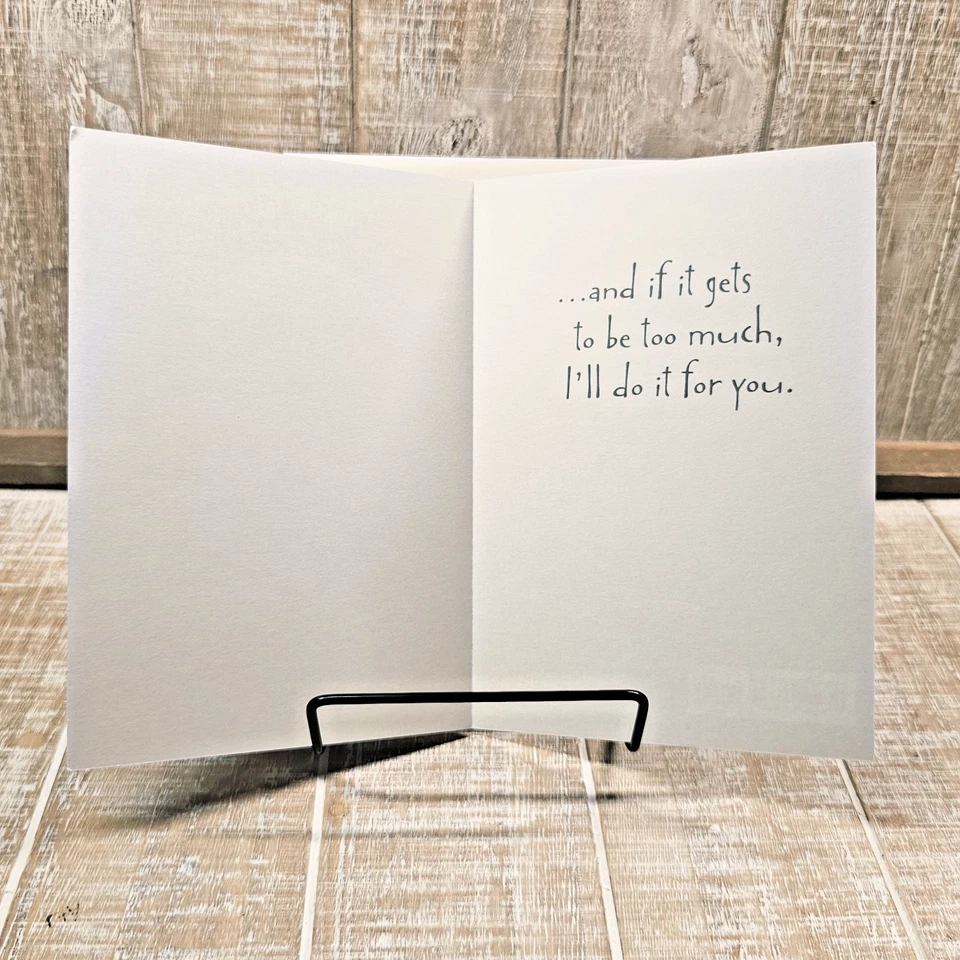 ...and if it gets
to be too much,
I'll do it for you.